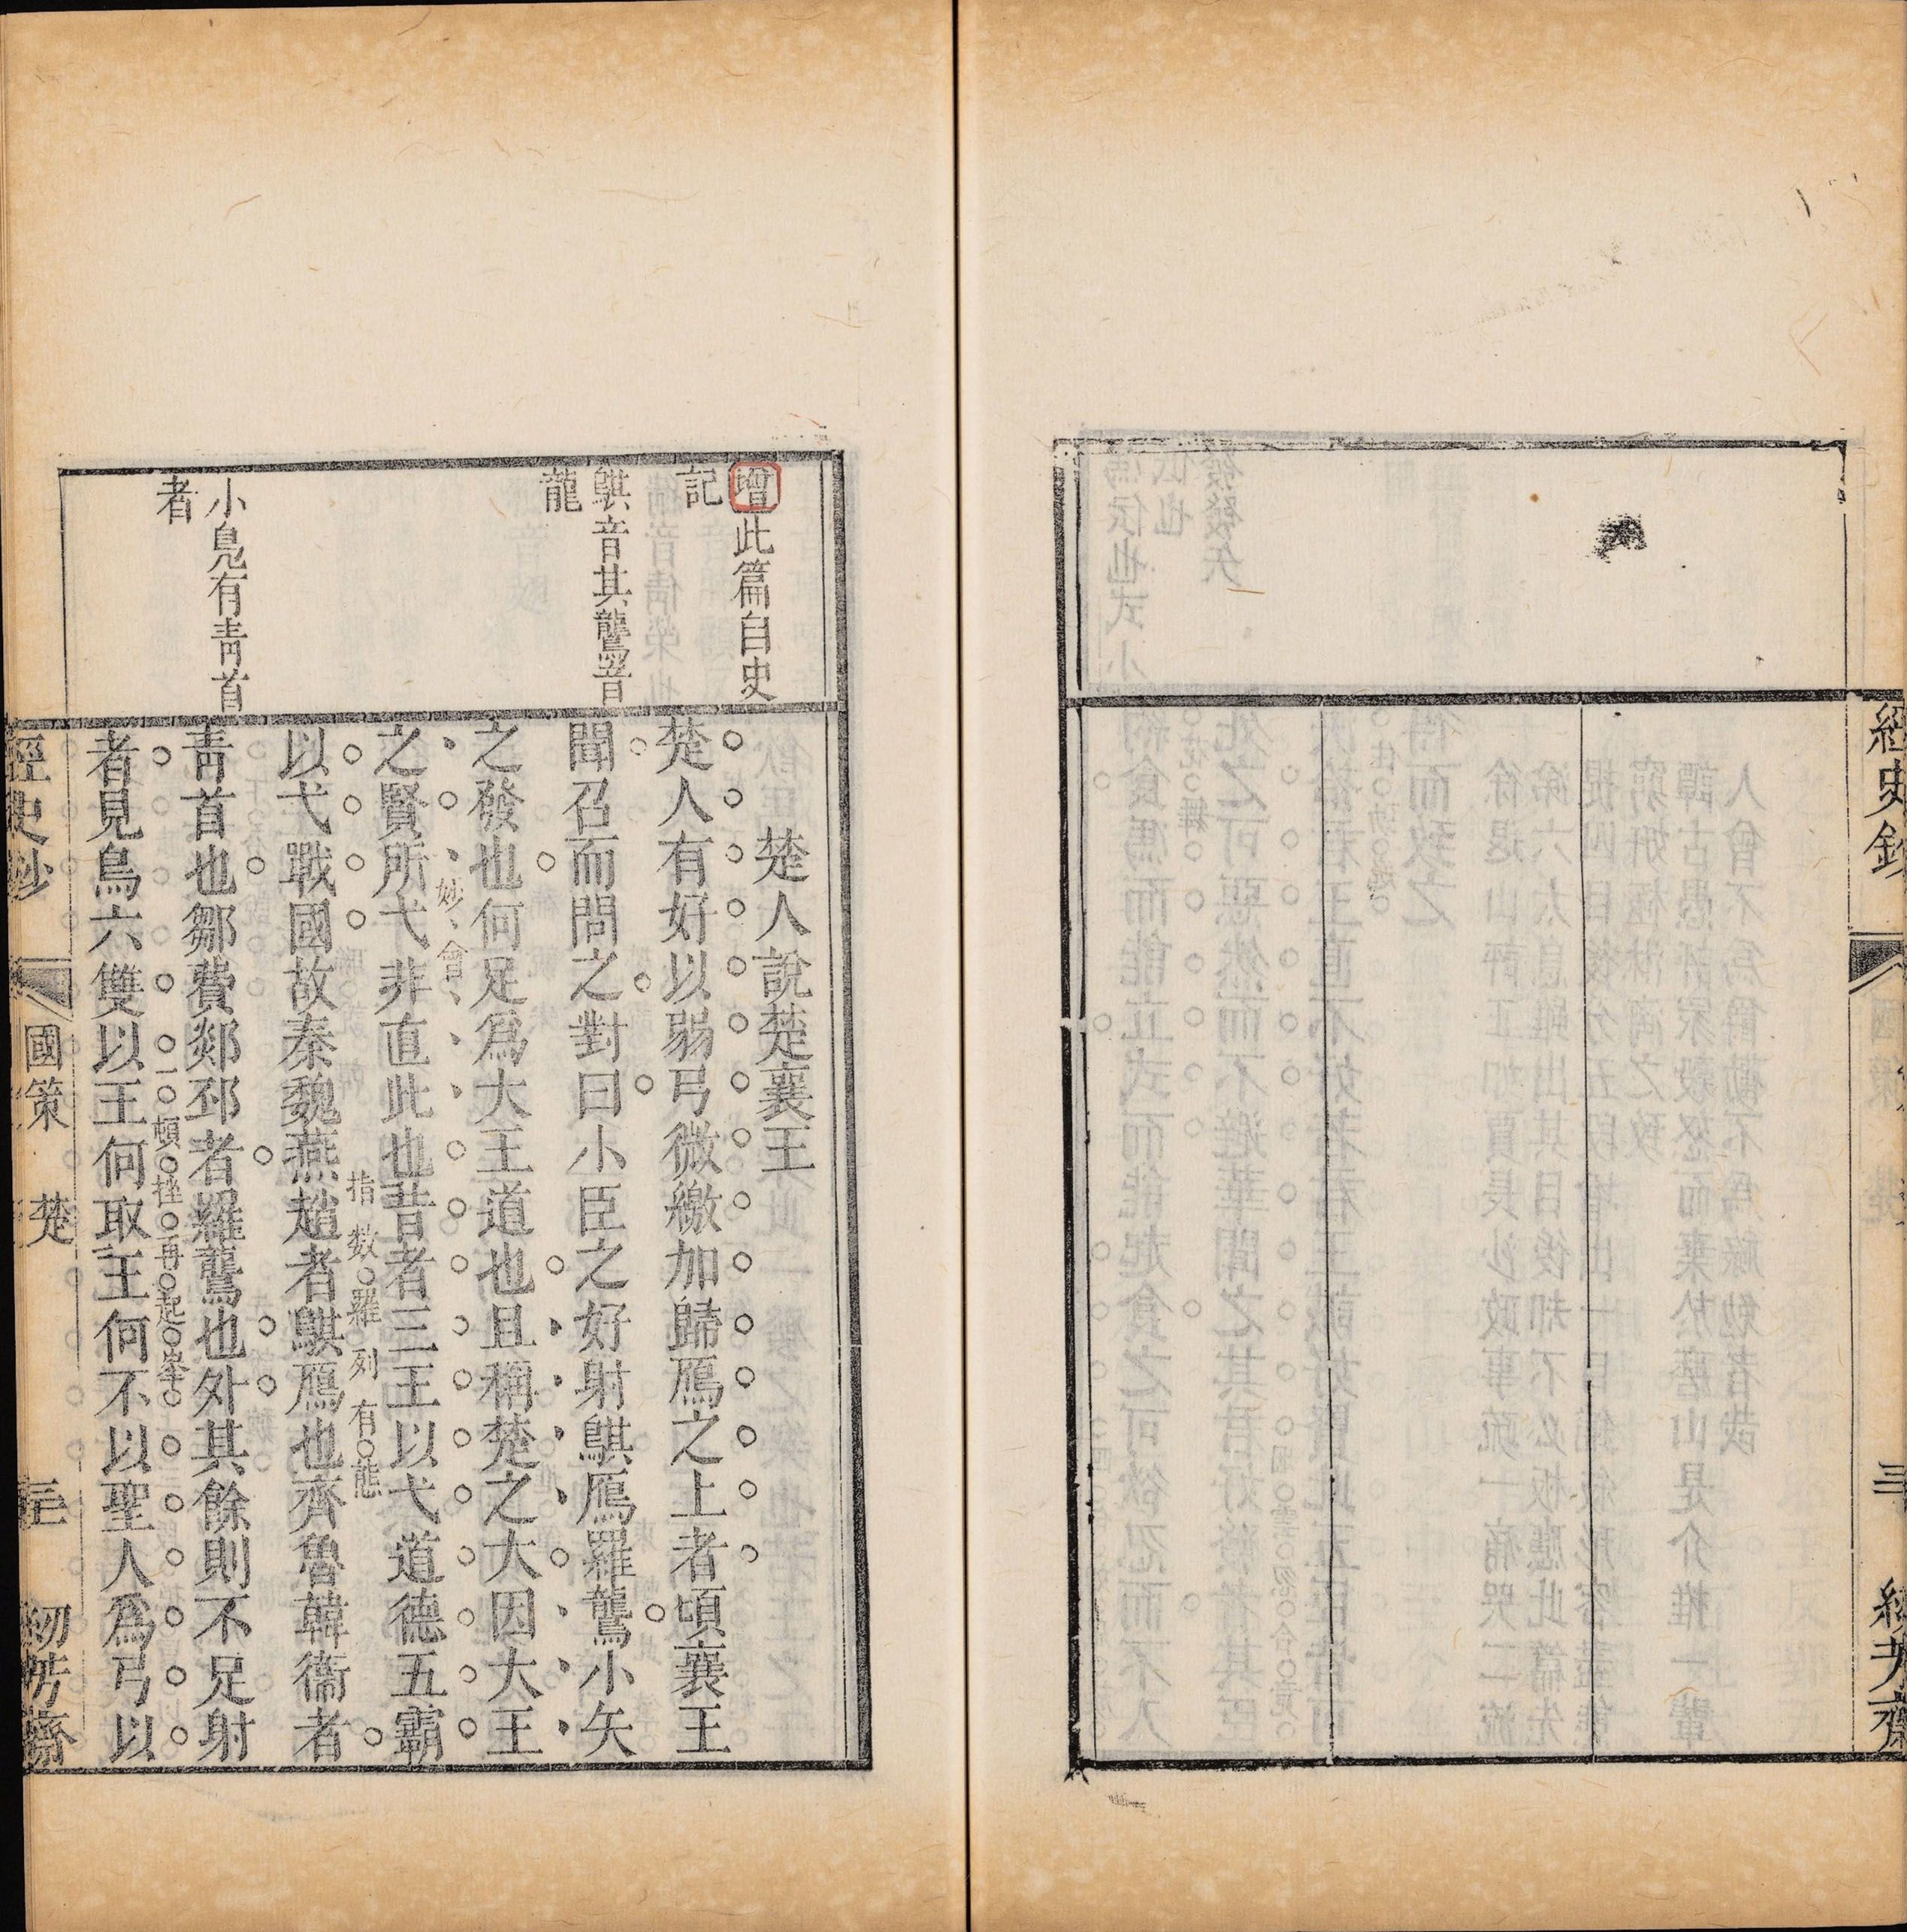 經史鈔
三
紉芳齋
增此篇自史
記
鶀音其鸗音
龍
小鳧有青首
者
楚人說楚襄王
楚人有好以弱弓微繳加歸鴈之上者頃襄王
聞召而問之對曰小臣之好射鶀鴈羅鸗小矢
之發也何足爲大王道也且稱楚之大因大王
之賢所弋非直此也昔者三王以弋道德五霸
妙會
以弋戰國故秦魏燕趙者鶀鴈也齊魯韓衞者
指數羅列有態
青首也鄒費郯邳者羅鸗也外其餘則不足射
者見鳥六雙以王何取王何不以聖人爲弓以
一頓挫再起峯
經史鈔
國策
楚
紉芳齋